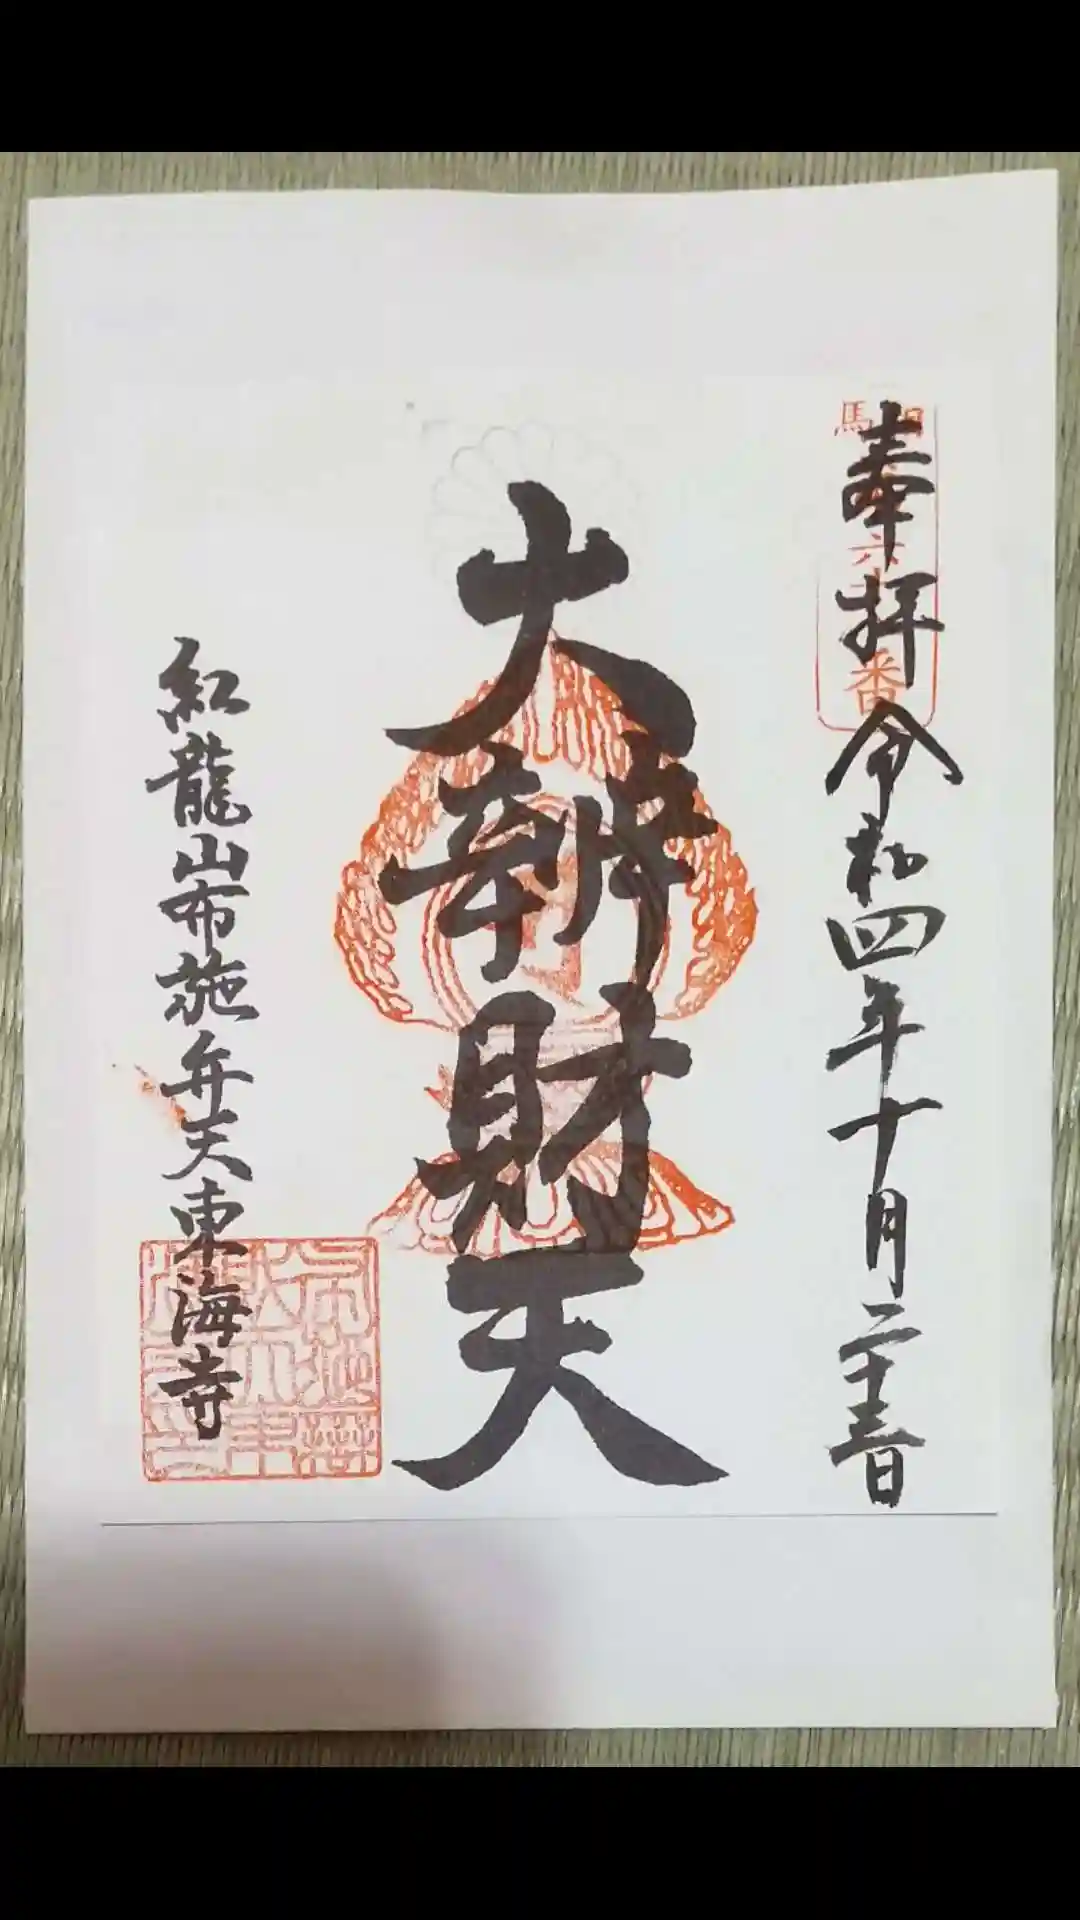 奉拝 令和四年十月二十三日
大辨財天
紅龍山布施弁天東海寺